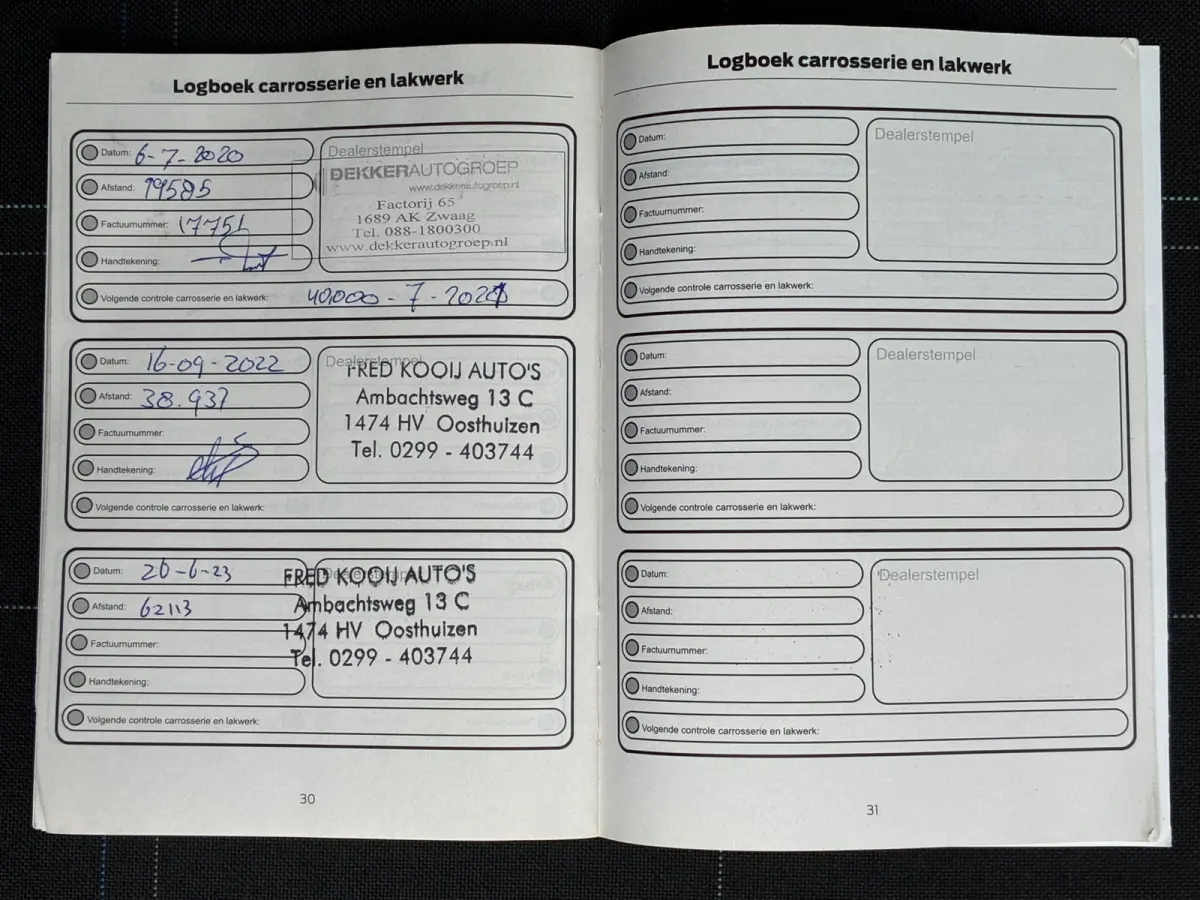 Logboek carrosserie en lakwerk
Datum: 6-7-2020
Afstand: 19585
Factuurnummer: 17751
Handtekening:
Dealerstempel
DEKKERAUTOGROEP
www.dekkerautogroep.nl
Factorij 65
1689 AK Zwaag
Tel. 088-1800300
www.dekkerautogroep.nl
Volgende controle carrosserie en lakwerk: 40.000 - 7 - 2021
Datum: 16-09-2022
Afstand: 38.937
Factuurnummer:
Handtekening:
Dealerstempel
FRED KOOIJ AUTO'S
Ambachtsweg 13 C
1474 HV Oosthuizen
Tel. 0299 - 403744
Volgende controle carrosserie en lakwerk:
Datum: 26-6-23
Afstand: 62113
Factuurnummer:
Handtekening:
Dealerstempel
FRED KOOIJ AUTO'S
Ambachtsweg 13 C
1474 HV Oosthuizen
Tel. 0299 - 403744
Volgende controle carrosserie en lakwerk:
30
Logboek carrosserie en lakwerk
Datum:
Afstand:
Factuurnummer:
Handtekening:
Dealerstempel
Volgende controle carrosserie en lakwerk:
Datum:
Afstand:
Factuurnummer:
Handtekening:
Dealerstempel
Volgende controle carrosserie en lakwerk:
Datum:
Afstand:
Factuurnummer:
Handtekening:
Dealerstempel
Volgende controle carrosserie en lakwerk:
31